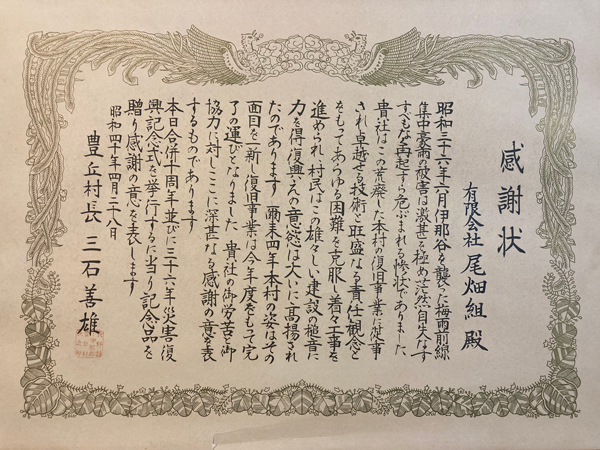 感謝状
有限会社 尾畑組 殿
昭和三十六年六月伊那谷を襲った梅雨前線
集中豪雨の被害は激甚を極め茫然自失なす
すべもな再起すら危ぶまれる惨状でありました
貴社はこの荒廃した本村の復旧事業に従事
され卓越せる技術と旺盛なる責任観念と
をもってあらゆる困難を克服し着々工事を
進められ、村民はこの雄々しい建設の槌音に
力を得復興えの意慾は大いに高揚され
たのであります 爾来四年本村の姿はその
面目を一新し復旧事業は今年度をもって完
了の運びとなりました 貴社の御労苦と御
協力に対しここに深甚なる感謝の意を表
するものであります
本日合併十周年並びに三十六年災害復
興記念式を挙行するに当り記念品を
贈り感謝の意を表します
昭和四十年四月二十八日
豊丘村長 三石善雄